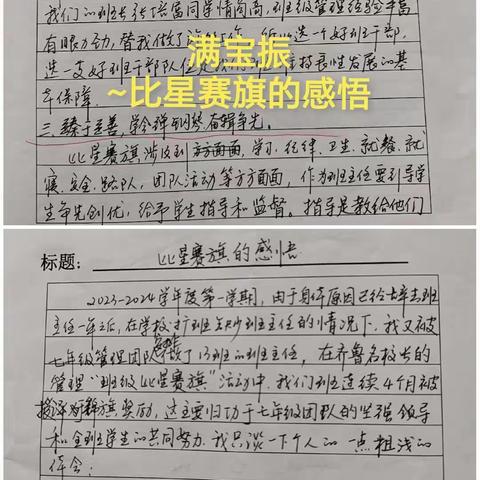 我们的班长张培富同学情商高,班级管理经验丰富
有眼力劲,替我做了
选一支好班干部队伍是我们 持良性发展的基
本保障.
满宝振
~比星赛旗的感悟
三.臻于至善,学会 到努 奋辑争先。
比星赛旗涉及到方方面面,学习.纪律.卫生.就餐.就
寝.安全.路队.团队活动等方方面面,作为班主任要引导学
生争先创优,给予学生指导和监督。指导是教给他们
标题: 比星赛旗的感悟
2023-2024学年度第一学期,由于身体原因已经辞去班
主任一年之后,在学校 班 缺少班主任的情况下.我又被
七年级管理团队 做了13班的班主任,在齐鲁名校长的
管理"班级比星赛旗"活动中.我们班连续4个月被
旗奖励,这主要归功于七年级团队的坚强领导
和全班学生的共同努力.我只谈一下个人的一点粗浅的
体会: